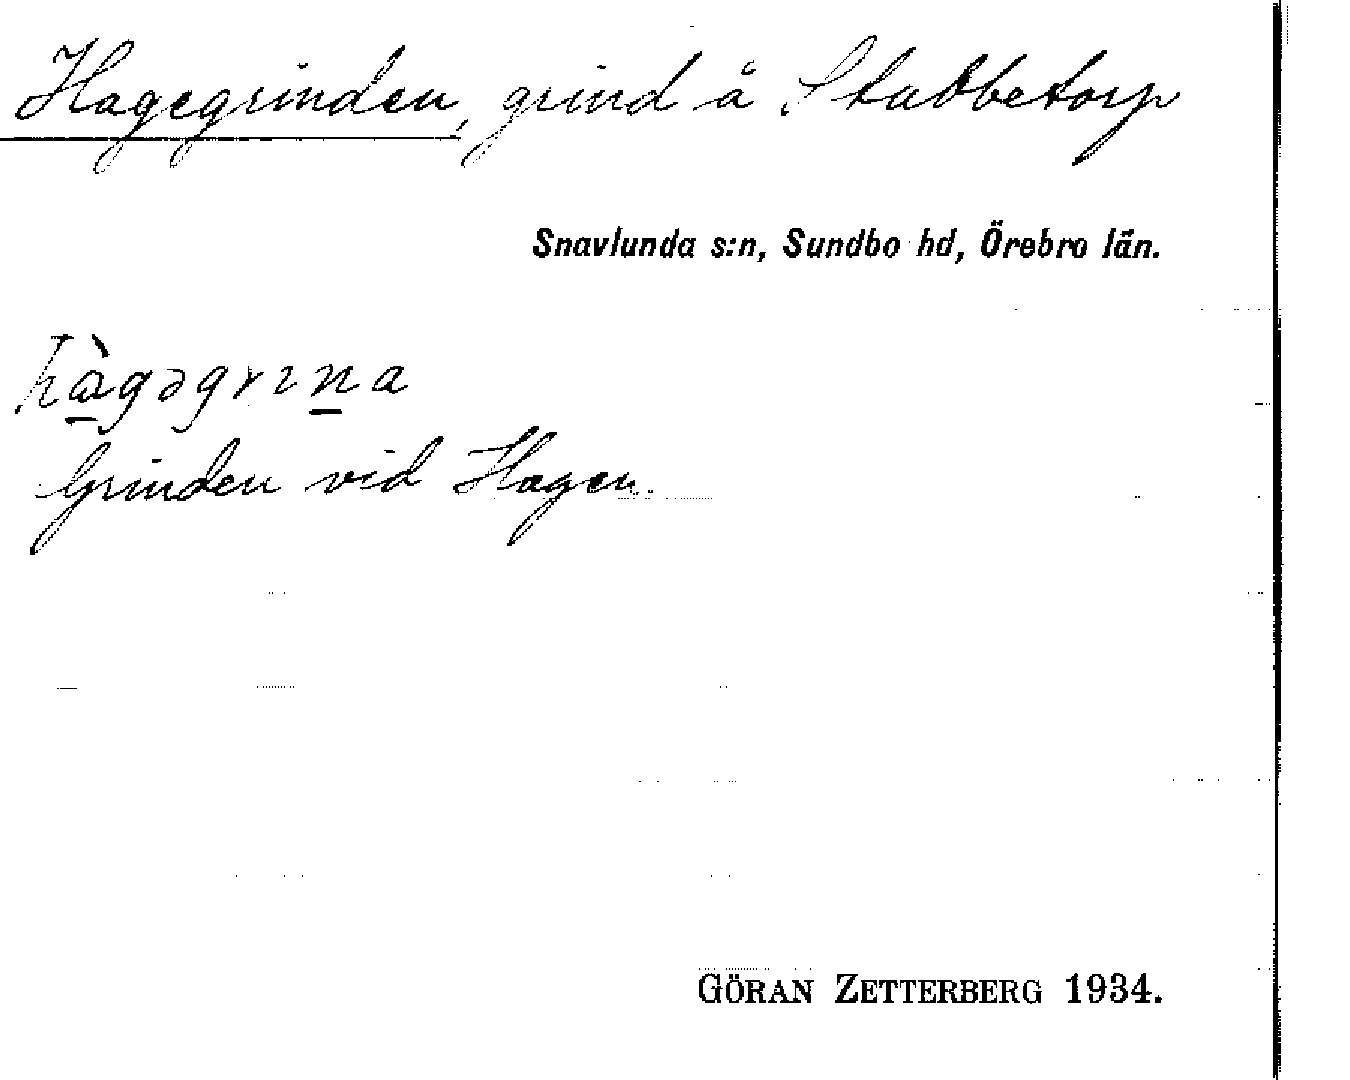 Hagegrinden, grind å Stabbetorp
Snavlunda s:n, Sundbo hd, Örebro län.
hàgəgrɩna
Grinden vid Hagen.
GÖRAN ZETTERBERG 1934.